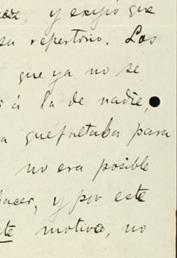 , y exijió que
su repertorio. Los
que ya no se
á la de nadie,
a que faltaba para
no era posible
hacer, y por este
este motivo, no